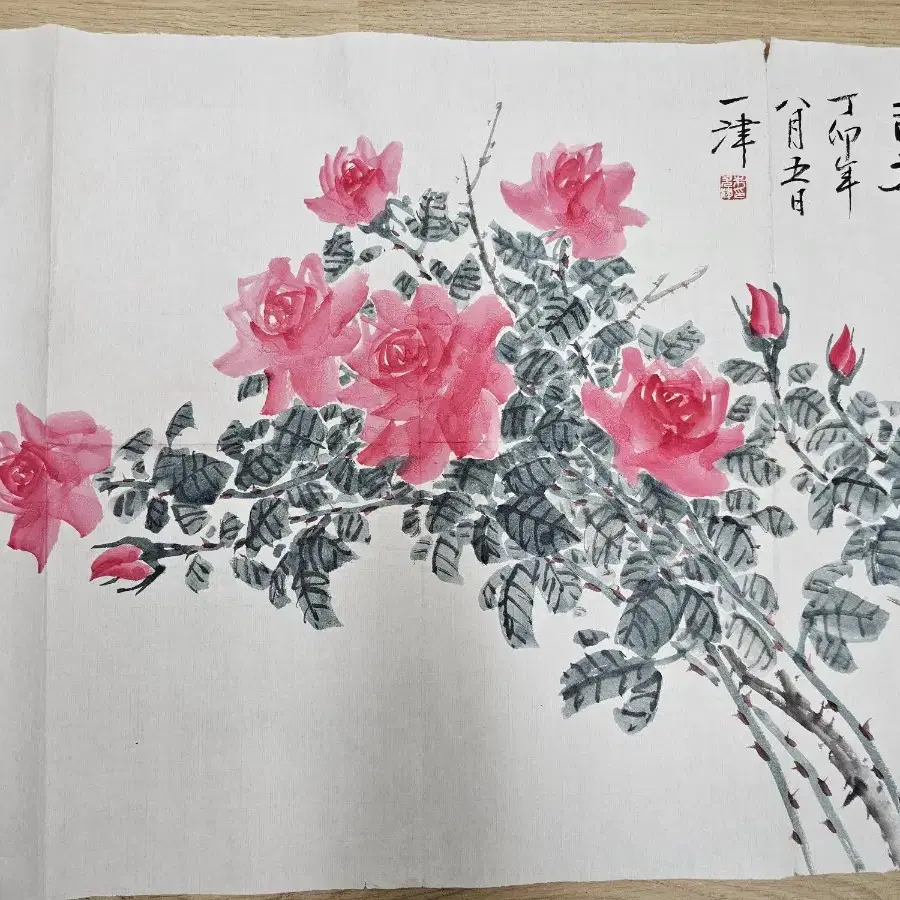 丁卯年
八月五日
一津